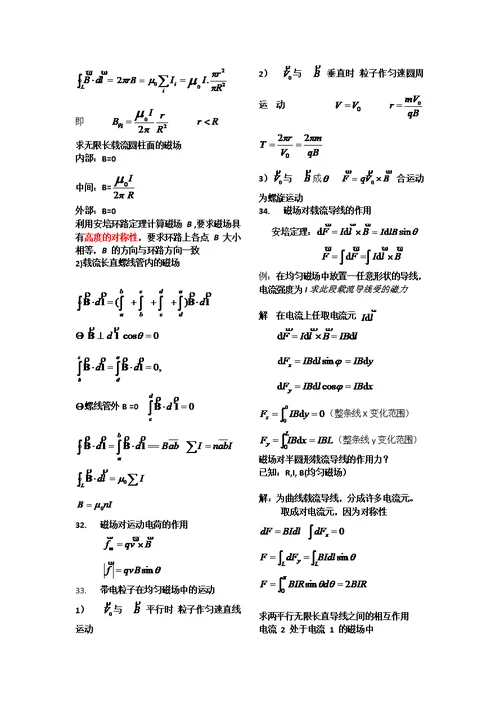 ∮_L B⃗·dl⃗ = 2πrB = μ₀∑_i I_i = μ₀I·πr²/πR²
即 B_内 = μ₀I/2π · r/R² r < R
求无限长载流圆柱面的磁场
内部:B=0
中间:B= μ₀I/2π R
外部:B=0
利用安培环路定理计算磁场 B ,要求磁场具
有高度的对称性，要求环路上各点 B 大小
相等，B 的方向与环路方向一致
2)载流长直螺线管内的磁场
∮B·dl = (∫_a^b + ∫_b^c + ∫_c^d + ∫_d^a)B·dl
Θ B ⊥ d l cosθ = 0
∫_b^c B·dl = ∫_d^a B·dl = 0,
Θ螺线管外 B =0 ∫_c^d B·d l = 0
∮B·dl = ∫_a^b B·dl == Bab ∑I = nabI
∮_L B·dl = μ₀∑I
B = μ₀nI
32. 磁场对运动电荷的作用
f_m = qv × B
|f| = qvB sinθ
33. 带电粒子在均匀磁场中的运动
1） V₀与 B 平行时 粒子作匀速直线
运动
2） V₀与 B 垂直时 粒子作匀速圆周
运 动 V = V₀ r = mV₀/qB
T = 2πr/V₀ = 2πm/qB
3）V₀与 B成θ F = qV₀ × B 合运动
为螺旋运动
34. 磁场对载流导线的作用
安培定理: dF = Idl × B = IdlB sinθ
F = ∫dF = ∫Idl × B
例: 在均匀磁场中放置一任意形状的导线，
电流强度为 I 求此段载流导线受的磁力
解 在电流上任取电流元 Idl
dF = Idl × B = IBdl
dF_x = IBdl sinφ = IBdy
dF_y = IBdl cosφ = IBdx
F_x = ∫₀⁰ IBdy = 0（整条线 X 变化范围）
F_y = ∫₀^L IBdx = IBL（整条线 y 变化范围）
磁场对半圆形载流导线的作用力?
已知: R,I, B(均匀磁场)
解: 为曲线载流导线，分成许多电流元。
取成对电流元，因为对称性
dF = BIdl ∫dF_x = 0
F = ∫_L dF_y = ∫_L BIdl sinθ
F = ∫₀^π BIR sinθdθ = 2BIR
求两平行无限长直导线之间的相互作用
电流 2 处于电流 1 的磁场中